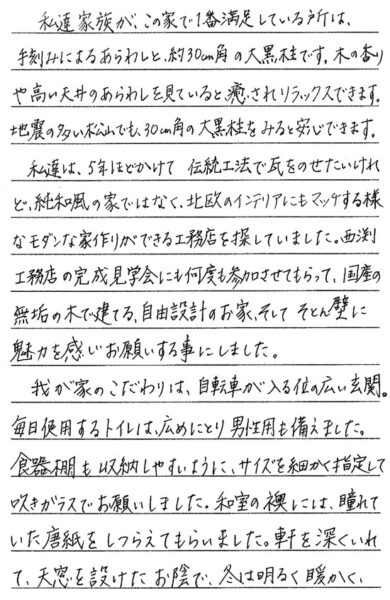 私達家族が、この家で1番満足している所は、
手刻みによるあらわしと、約30cm角の大黒柱です。木の香り
や高い天井のあらわしを見ていると癒されリラックスできます。
地震の多い松山でも、30cm角の大黒柱をみると安心できます。
私達は、5年ほどかけて 伝統工法で瓦をのせたいけれ
ど、純和風の家ではなく、北欧のインテリアにもマッチする様
なモダンな家作りができる工務店を探していました。西渕
工務店の完成見学会にも何度も参加させてもらって、国産の
無垢の木で建てる、自由設計のお家、そして そとん壁に
魅力を感じお願いする事にしました。
我が家のこだわりは、自転車が入る位の広い玄関。
毎日使用するトイレは、広めにとり男性用も備えました。
食器棚も収納しやすいように、サイズを細かく指定して
吹きガラスでお願いしました。和室の襖には、憧れて
いた唐紙をしつらえてもらいました。軒を深くいれ
て、天窓を設けたお陰で、冬は明るく暖かく、